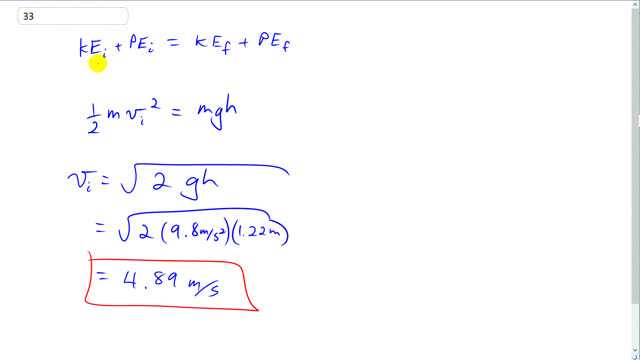 33
KE_i + PE_i = KE_f + PE_f
1/2 m v_i^2 = mgh
v_i = √2 gh
= √2 (9.8 m/s²)(1.22 m)
= 4.89 m/s